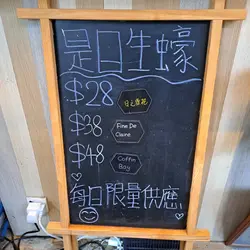 是日生蠔
$28
$38
Fine De
Claire
$48
Coffin
Bay
每日限量供應